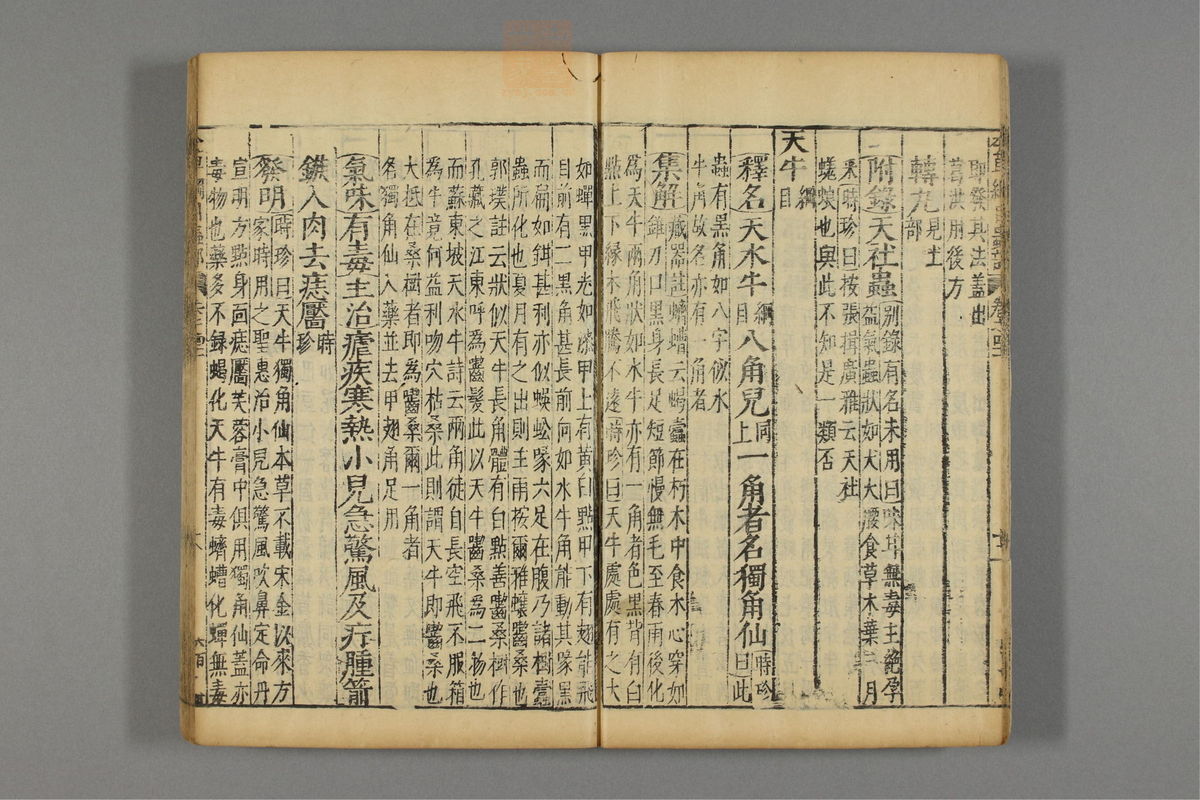 即發其法蓋出
葛洪用後方
轉丸見土部
附錄天社蟲別錄有名未用曰味甘無毒主絕孕
益氣蟲狀如大大腰食草木葉三月
釆時珍曰按張揖廣雅云天社
蜣蜋也與此不知是一類否
天牛綱目
釋名天水牛綱目八角兒同上一角者名獨角仙時珍曰此
蟲有黑角如八字似水
牛角故名亦有一角者
集解藏器註蠐螬云蝎蠹在朽木中食木心穿如
錐刀口黑身長足短節慢無毛至春雨後化
為天牛兩角狀如水牛亦有一角者色黑背有白
點上下緣木飛騰不遠時珍曰天牛處處有之大
如蟬黑甲光如漆甲上有黃白點甲下有翅能飛
目前有二黑角甚長前向如水牛角能動其喙黑
而扁如鉗甚利亦似蜈蚣喙六足在腹乃諸樹蠹
蟲所化也夏月有之出則主雨按爾雅蠰齧桑也
郭璞註云狀似天牛長角體有白點善齧桑樹作
孔藏之江東呼為齧髮此以天牛齧桑為二物也
而蘇東坡天水牛詩云兩角徒自長空飛不服箱
為牛竟何益利吻穴枯桑此則謂天牛即齧桑也
大抵在桑樹者即為齧桑爾一角者
名獨角仙入藥並去甲翅角足用
氣味有毒主治瘧疾寒熱小兒急驚風及疔腫箭
鏃入肉去痣靨時珍
發明時珍曰天牛獨角仙本草不載宋金以來方
家時用之聖惠治小兒急驚風吹鼻定命丹
宣明方點身面痣靨芙蓉膏中俱用獨角仙蓋亦
毒物也藥多不錄蝎化天牛有毒蠐螬化蟬無毒